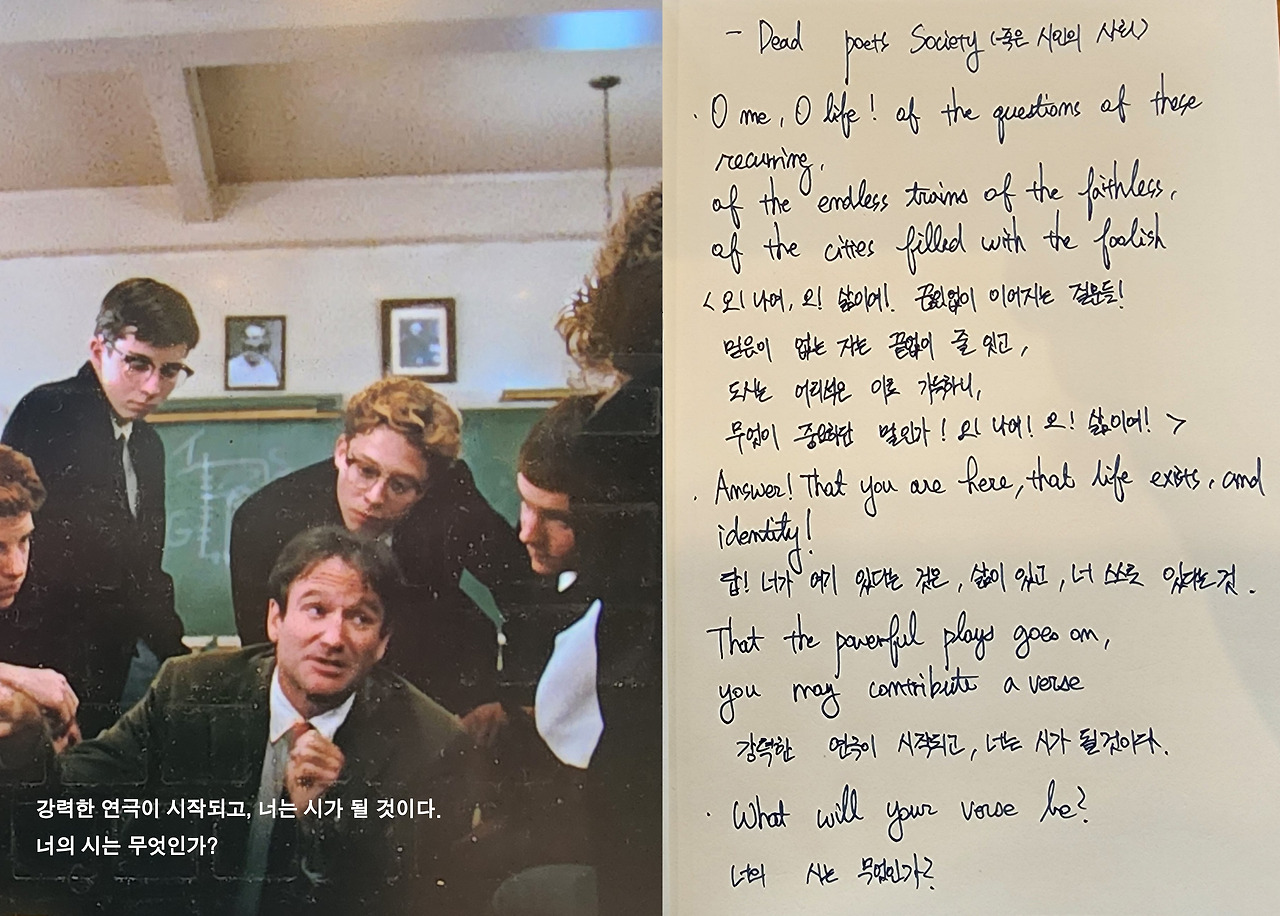 강력한 연극이 시작되고, 너는 시가 될 것이다.
너의 시는 무엇인가?
- Dead poets Society (죽은 시인의 사회)
· O me, O life! of the questions of these
recurring,
of the endless trains of the faithless,
of the cities filled with the foolish
< 오! 나여, 오! 삶이여! 끝없이 이어지는 질문들!
믿음이 없는 자는 끝없이 줄 잇고,
도시는 어리석은 이로 가득하니,
무엇이 중요하단 말인가! 오! 나여! 오! 삶이여! >
· Answer! That you are here, that life exists, and
identity!
답! 너가 여기 있다는 것은, 삶이 있고, 너 스스로 있다는 것.
That the powerful plays goes on,
you may contribute a verse
강력한 연극이 시작되고, 너는 시가 될 것이다.
· What will your verse be?
너의 시는 무엇인가?